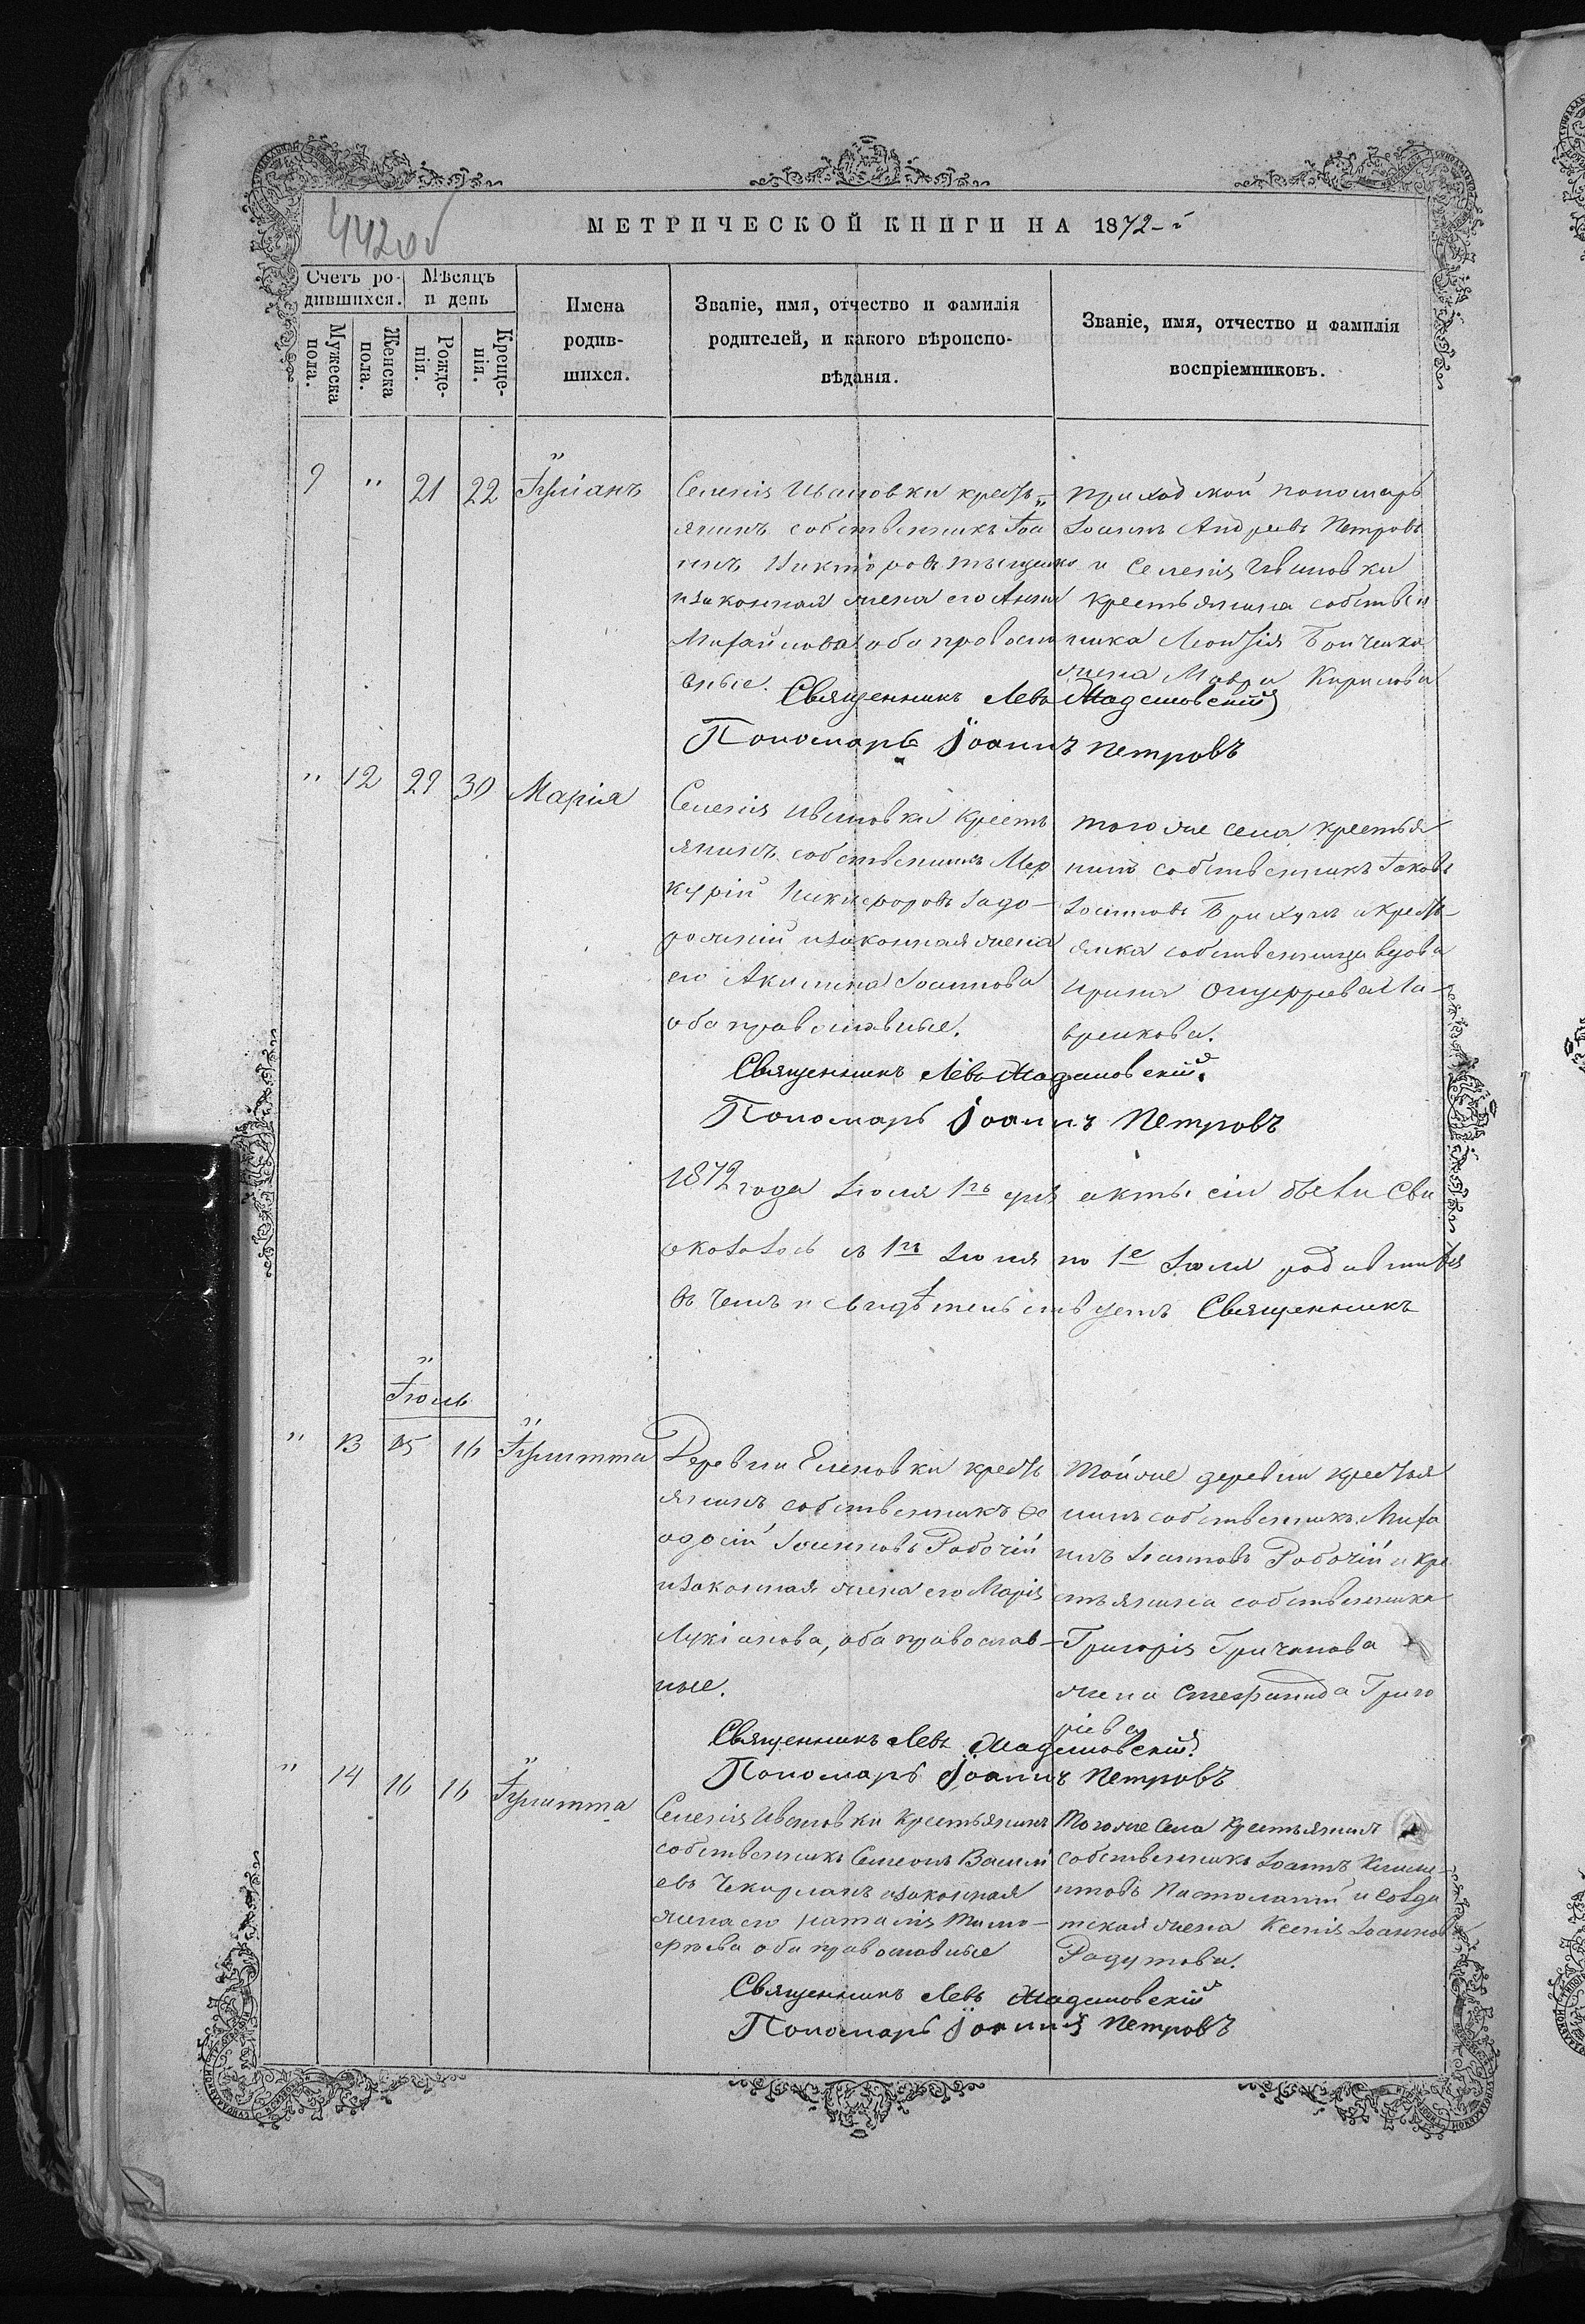 442 об
МЕТРИЧЕСКОЙ КНИГИ НА 1872-й
Счетъ ро-
дившихся.
Мѣсяцъ
и день
Мужеска
пола.
Женска
пола.
Рожде-
нія.
Креще-
нія.
Имена
родив-
шихся.
Званіе, имя, отчество и фамилія
родителей, и какого вѣроиспо-
вѣданія.
Званіе, имя, отчество и фамилія
воспріемниковъ.
9 " 21 22 Іуліанъ
Селенія Ивановки кресть-
янинъ собственникъ Іоа
ннъ Никторовъ
и законная жена его Анна
Михайлова оба правосла
вные.
приходской пономарь
Іоаннъ Андреевъ Петровъ
и Селенія Ивановки
крестьянина собствен
ника Леонтія
жена Мавра Кирилова
Священникъ Левъ
Пономарь Іоаннъ Петровъ
" 12 29 30 Марія
Селенія Ивановки кресть
янинъ собственникъ Мер
курій Никифоровъ Задо-
рожній и законная жена
его Акилина Іоаннова
оба православные.
того же села крестья
нинъ собственникъ Іаковъ
Іоанновъ и кресть-
янка собственница вдова
Ирина Онуфріева Ла-
врикова.
Священникъ Левъ
Пономарь Іоаннъ Петровъ
1872 года Іюля 1го дня акты сіи были Сви
оказалось съ 1го Іюня по 1е Іюля родившихся
въ чемъ и свидѣтельствуетъ Священникъ
Іюль
" 13 15 16 Іулитта
Деревни Еленовки кресть
янинъ собственникъ Ѳе
одосій Іоанновъ Рабочій
и законная жена его Марія
Лукіанова, оба православ-
ные.
той же деревни крестья
нинъ собственникъ Миха
илъ Іоанновъ Рабочій и кре
стьянина собственника
Григорія Гричанова
жена Стефанида Григо
ріева
Священникъ Левъ
Пономарь Іоаннъ Петровъ
" 14 16 16 Іулитта
Селенія Ивановки крестьянинъ
собственникъ Симеонъ Васильи
евъ Чекирланъ и законная
жена его Наталія Тимо-
фѣева оба православные
Того же села крестьянинъ
собственникъ Іоаннъ Климе-
нтовъ и солда
тская жена Ксенія Іоаннов
Радутова.
Священникъ Левъ
Пономарь Іоаннъ Петровъ